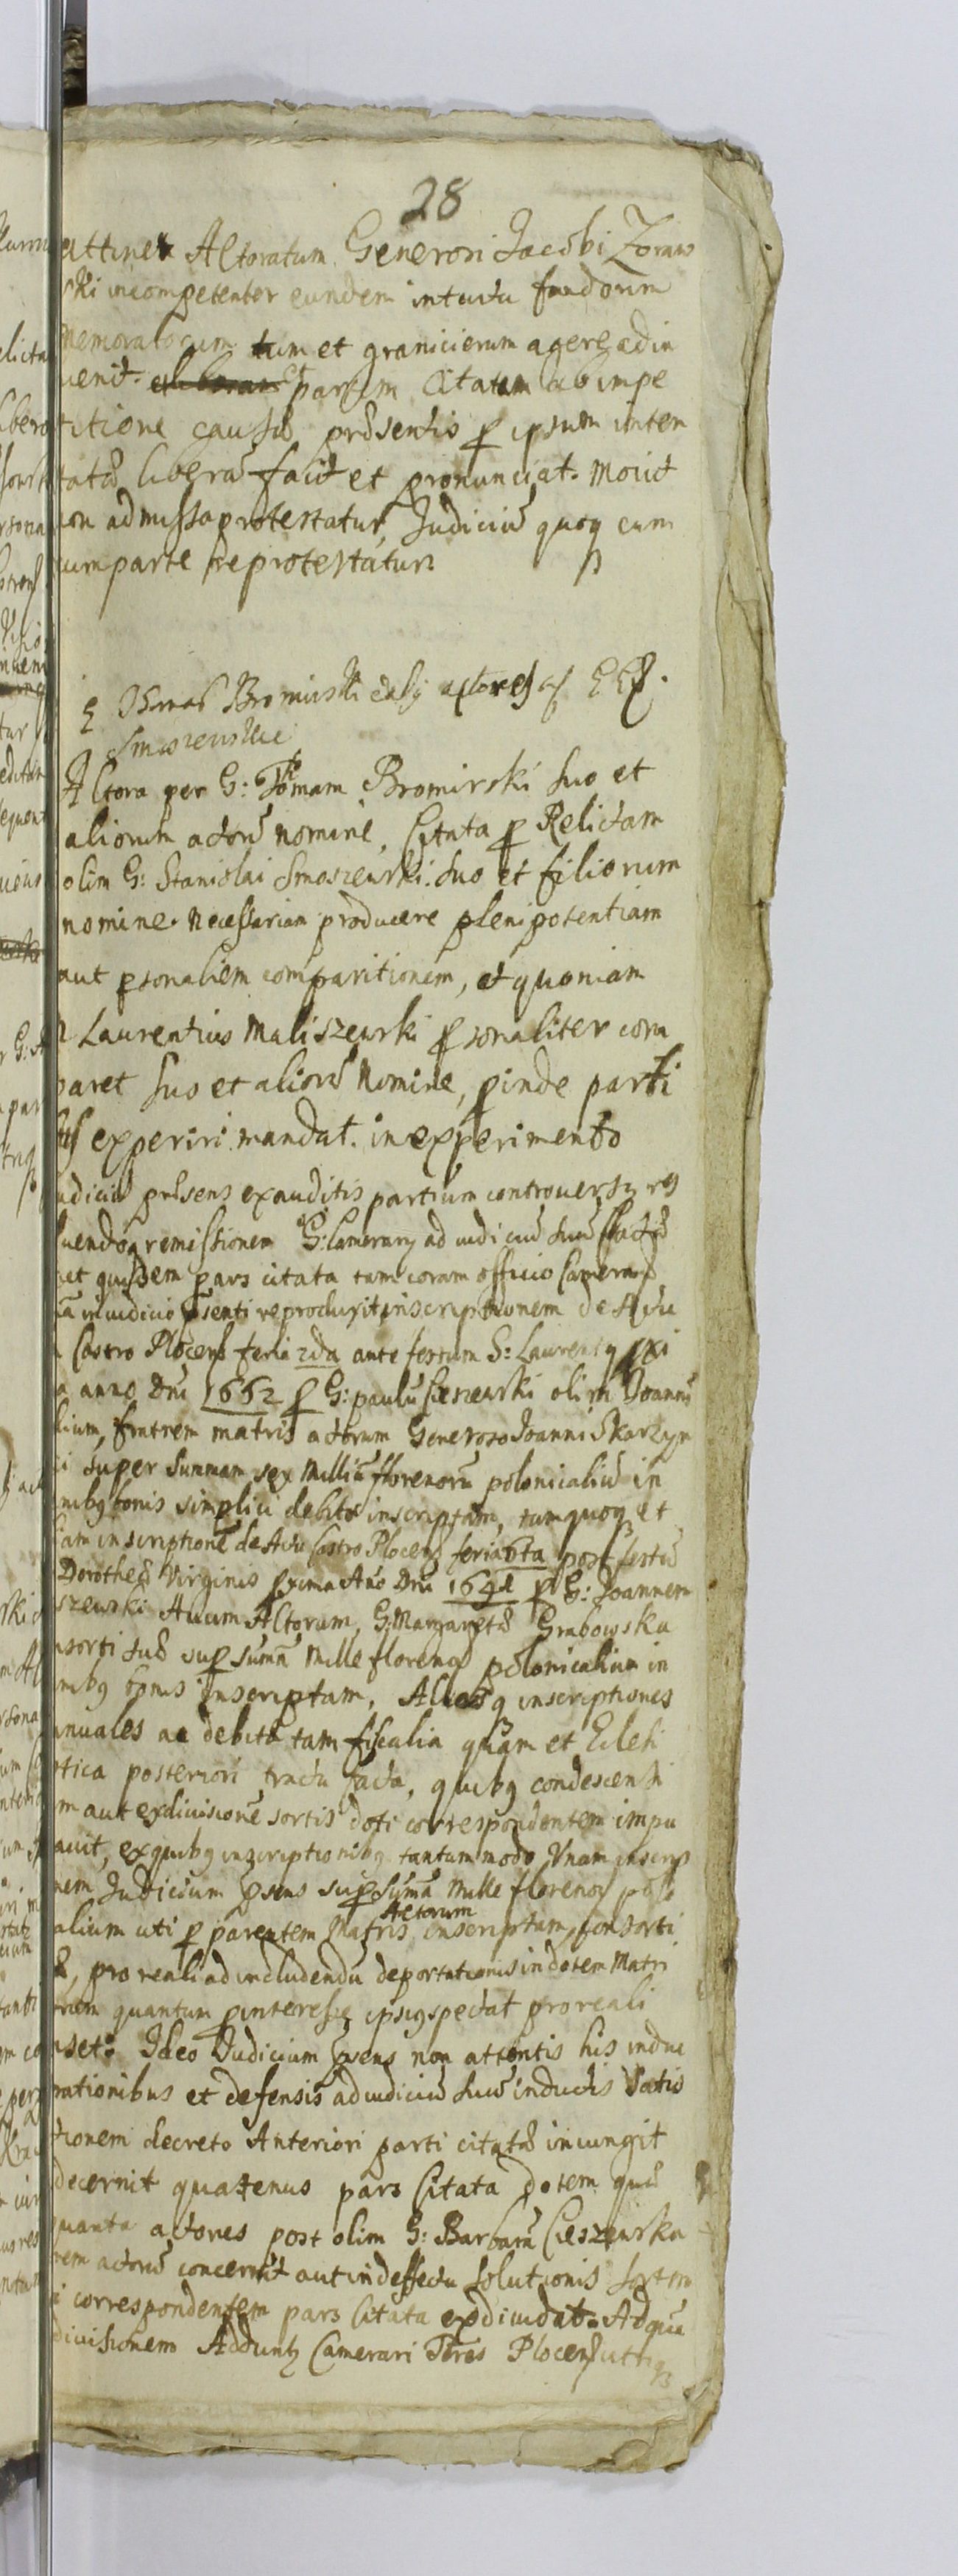 28
attinet Actoratum Generosi Jacobi Zoraw
ski incompetenter eundem intuitu fundorum
Memoratorum tum et granicierum agere adin
venit. et partem Citatam ab impe
titione causæ præsentis p ipsum inten
tatæ liberā facit et pronunciat. Movit
non admissa protestatur, Judiciū quoq cum
cum parte reprotestatur.
Bromirski actores
Smoszewskie
Actora per G: Thomam Bromirski suo et
aliorum actorū nomine, Citata p Relictam
olim G: Stanislai Smoszewski suo et filiorum
nomine. Necessariam producere plenipotentiam
aut psonalem comparitionem, et quoniam
Laurentius Maliszewski psonaliter com
paret suo et aliorū Nomine, pinde parti
experiri mandat. in experimento
udiciū præsens exauditis partium controversy
remissionem G: Camerarÿ ad iudiciū suū factā
et quidem pars citata tam coram officio Camerar
in iudicio psenti reproduxit inscriptionem de Actu
Castro Plocens feria 2da ante festum S: Laurentÿ pxi
a anno Dni 1662 p G: paulū Cieszewski olim Joannis
lium, fratrem matris actorum Generoso Joanni Skarzyn
i super summam sex Milliū florenorū polonicaliū in
nibq bonis simplici debito inscriptam, tum quoq et
iam inscriptionē de Actu Castro Plocens feria 6ta post festū
Dorotheæ Virginis pxima Año Dni p G: Joannem
szewski Avum Actorum, G: Margaretæ Grabowska
nsorti suæ sup sumā Mille florenoꝝ polonicalium in
nibq bonis inscriptam, Aliasq inscriptiones
nnuales ac debita tam fiscalia quam et Eclesi
stica posteriori tractu facta, quibq condescensi
m aut exdivisionē sortis doti correspondentem impu
avit, ex quibq inscriptionibq tantummodo Unam inscrip
nem Judicium psens sup sumā Mille florenoꝝ polo
alium uti p parentem Matris Actorum inscriptam consorti
æ, pro reali ad includendū deportationis in dotem Matri
rum quantum pinteresse ipsiq spectat pro reali
nset. Ideo Judicium psens non attentis his induc
rationibus et defensis ad iudiciū suū inductis Satis
tionem decreto Anteriori parti citatæ iniungit
decernit quatenus pars Citata dotem quæ
quanta actores post olim G: Barbarā Cieszewska
rem actorū concernit aut in deffectu solutionis sortem
i correspondentem pars Citata exdividat. Ad quā
divisionem Adduntz Camerari Terres Plocens utriq